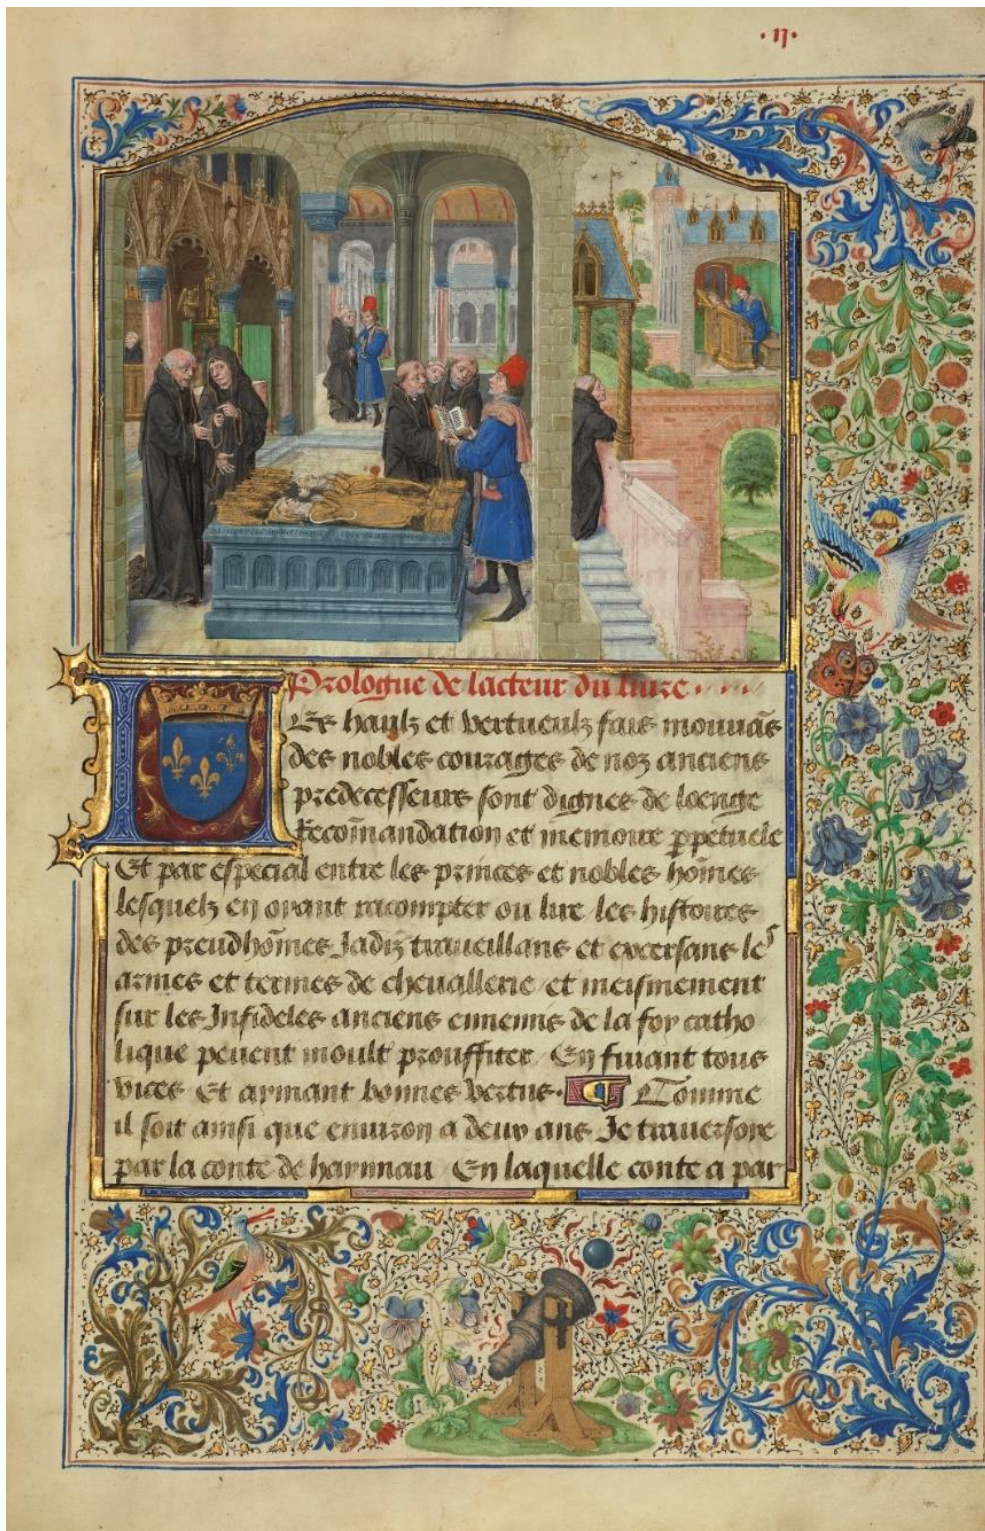 ·II·
Prologue de lacteur du liure
Les haulz et vertueulz fais mouuãs
des nobles courages de noz anciens
predecesseurs sont dignes de loenge
Recõmandation et memoire ꝑpetuele
Et par especial entre les princes et nobles hõmes
lesquelz en oyant racompter ou lire les histoires
des preudhõmes Jadiz traueillans et excersans les
armes et termes de cheuallerie et meismement
sur les Infideles anciens ennemis de la foy catho
lique peuent moult prouffiter / En fuiant tous
vices Et aymant bonnes vertus. Comme
il soit ainsi que enuiron a deux ans Je trauersoie
par la conte de haynnau En laquelle conte a par